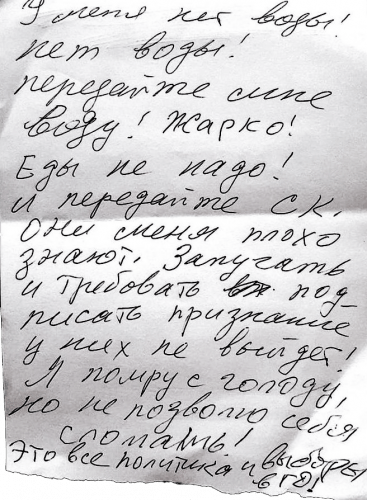 У меня нет воды!
нет воды!
передайте мне
Воду! Жарко!
Еды не надо!
и передайте СК,
они меня плохо
знают. Запугать
и требовать под-
писать признание
у них не выйдет!
Я помру с голоду,
но не позволю себя
сломать!
Это все политика и выборы
в ГО!